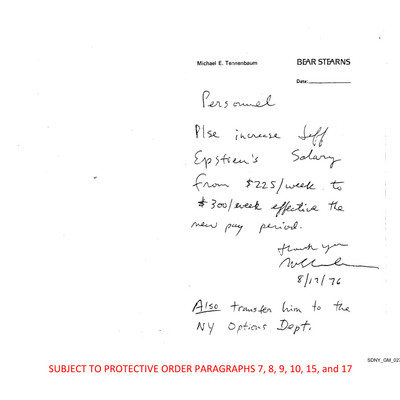 Michael E. Tennenbaum BEAR STEARNS
Date:
Personnel
Plse increase Jeff
Epstien's Salary
from $225/week to
$300/week effective the
new pay period.
thank you
8/17/76
Also transfer him to the
NY Options Dept.
SDNY_GM_02
SUBJECT TO PROTECTIVE ORDER PARAGRAPHS 7, 8, 9, 10, 15, and 17